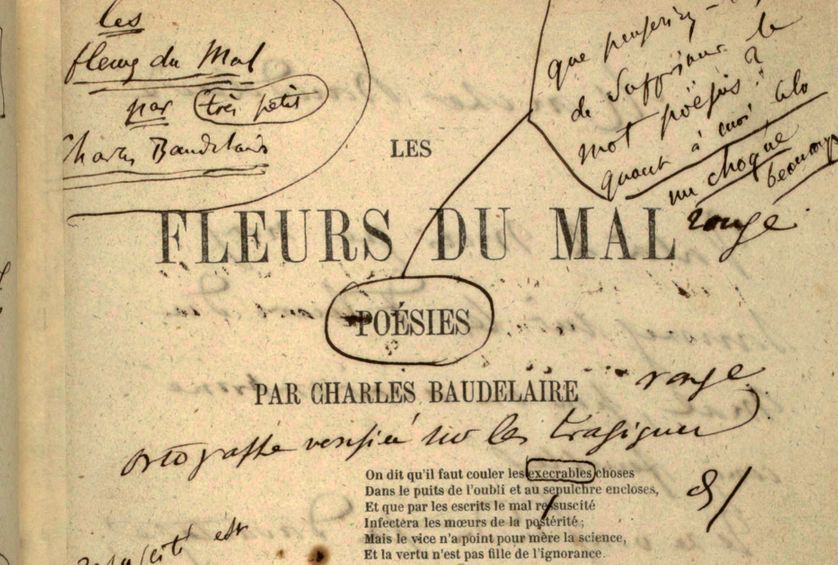 les
fleurs du Mal
par très petit
Charles Baudelaire
que penseriez-
de supprimer le
mot poësies?
quant à moi, cela
me choque
beaucoup
LES
FLEURS DU MAL
rouge
POÉSIES
PAR CHARLES BAUDELAIRE
rouge
ortographe verifiée sur les tragiques
On dit qu'il faut couler les execrables choses
Dans le puits de l'oubli et au sepulchre encloses,
Et que par les escrits le mal resuscité
Infectera les mœurs de la postérité;
Mais le vice n'a point pour mère la science,
Et la vertu n'est pas fille de l'ignorance.
est